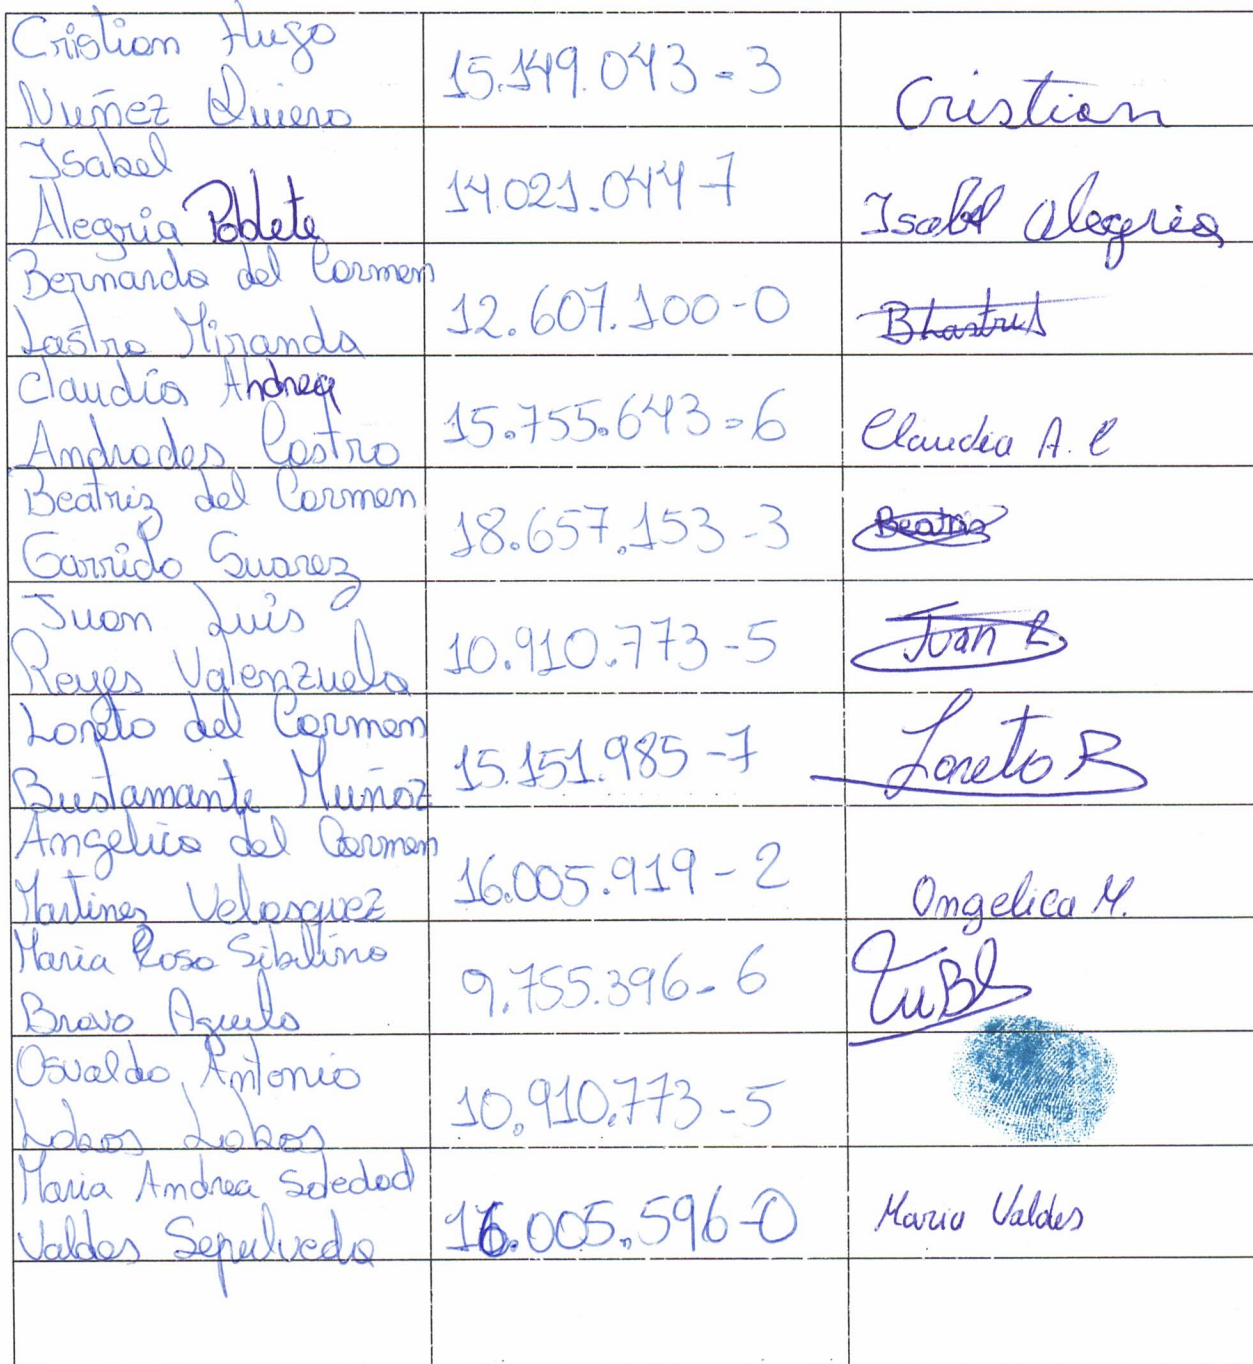 Cristian Hugo
Nuñez Quiero
15.149.043-3
Cristian
Isabel
Alegria Poblete
14.021.044-7
Isabel Alegria
Bernarda del Carmen
Lastra Miranda
12.607.100-0
Claudia Andrea
Andrades Castro
15.755.643-6
Claudia A. C
Beatriz del Carmen
Garrido Suarez
18.657.153-3
Beatriz
Juan Luis
Reyes Valenzuela
10.910.773-5
Juan R.
Loreto del Carmen
Bustamante Muñoz
15.151.985-7
Loreto B
Angelica del Carmen
Martinez Velasquez
16.005.919-2
Angelica M.
Maria Rosa Sibilina
Bravo Aguila
9.755.396-6
Osvaldo Antonio
Lobos Lobos
10.910.773-5
Maria Andrea Soledad
Valdes Sepulveda
16.005.596-0
Maria Valdes